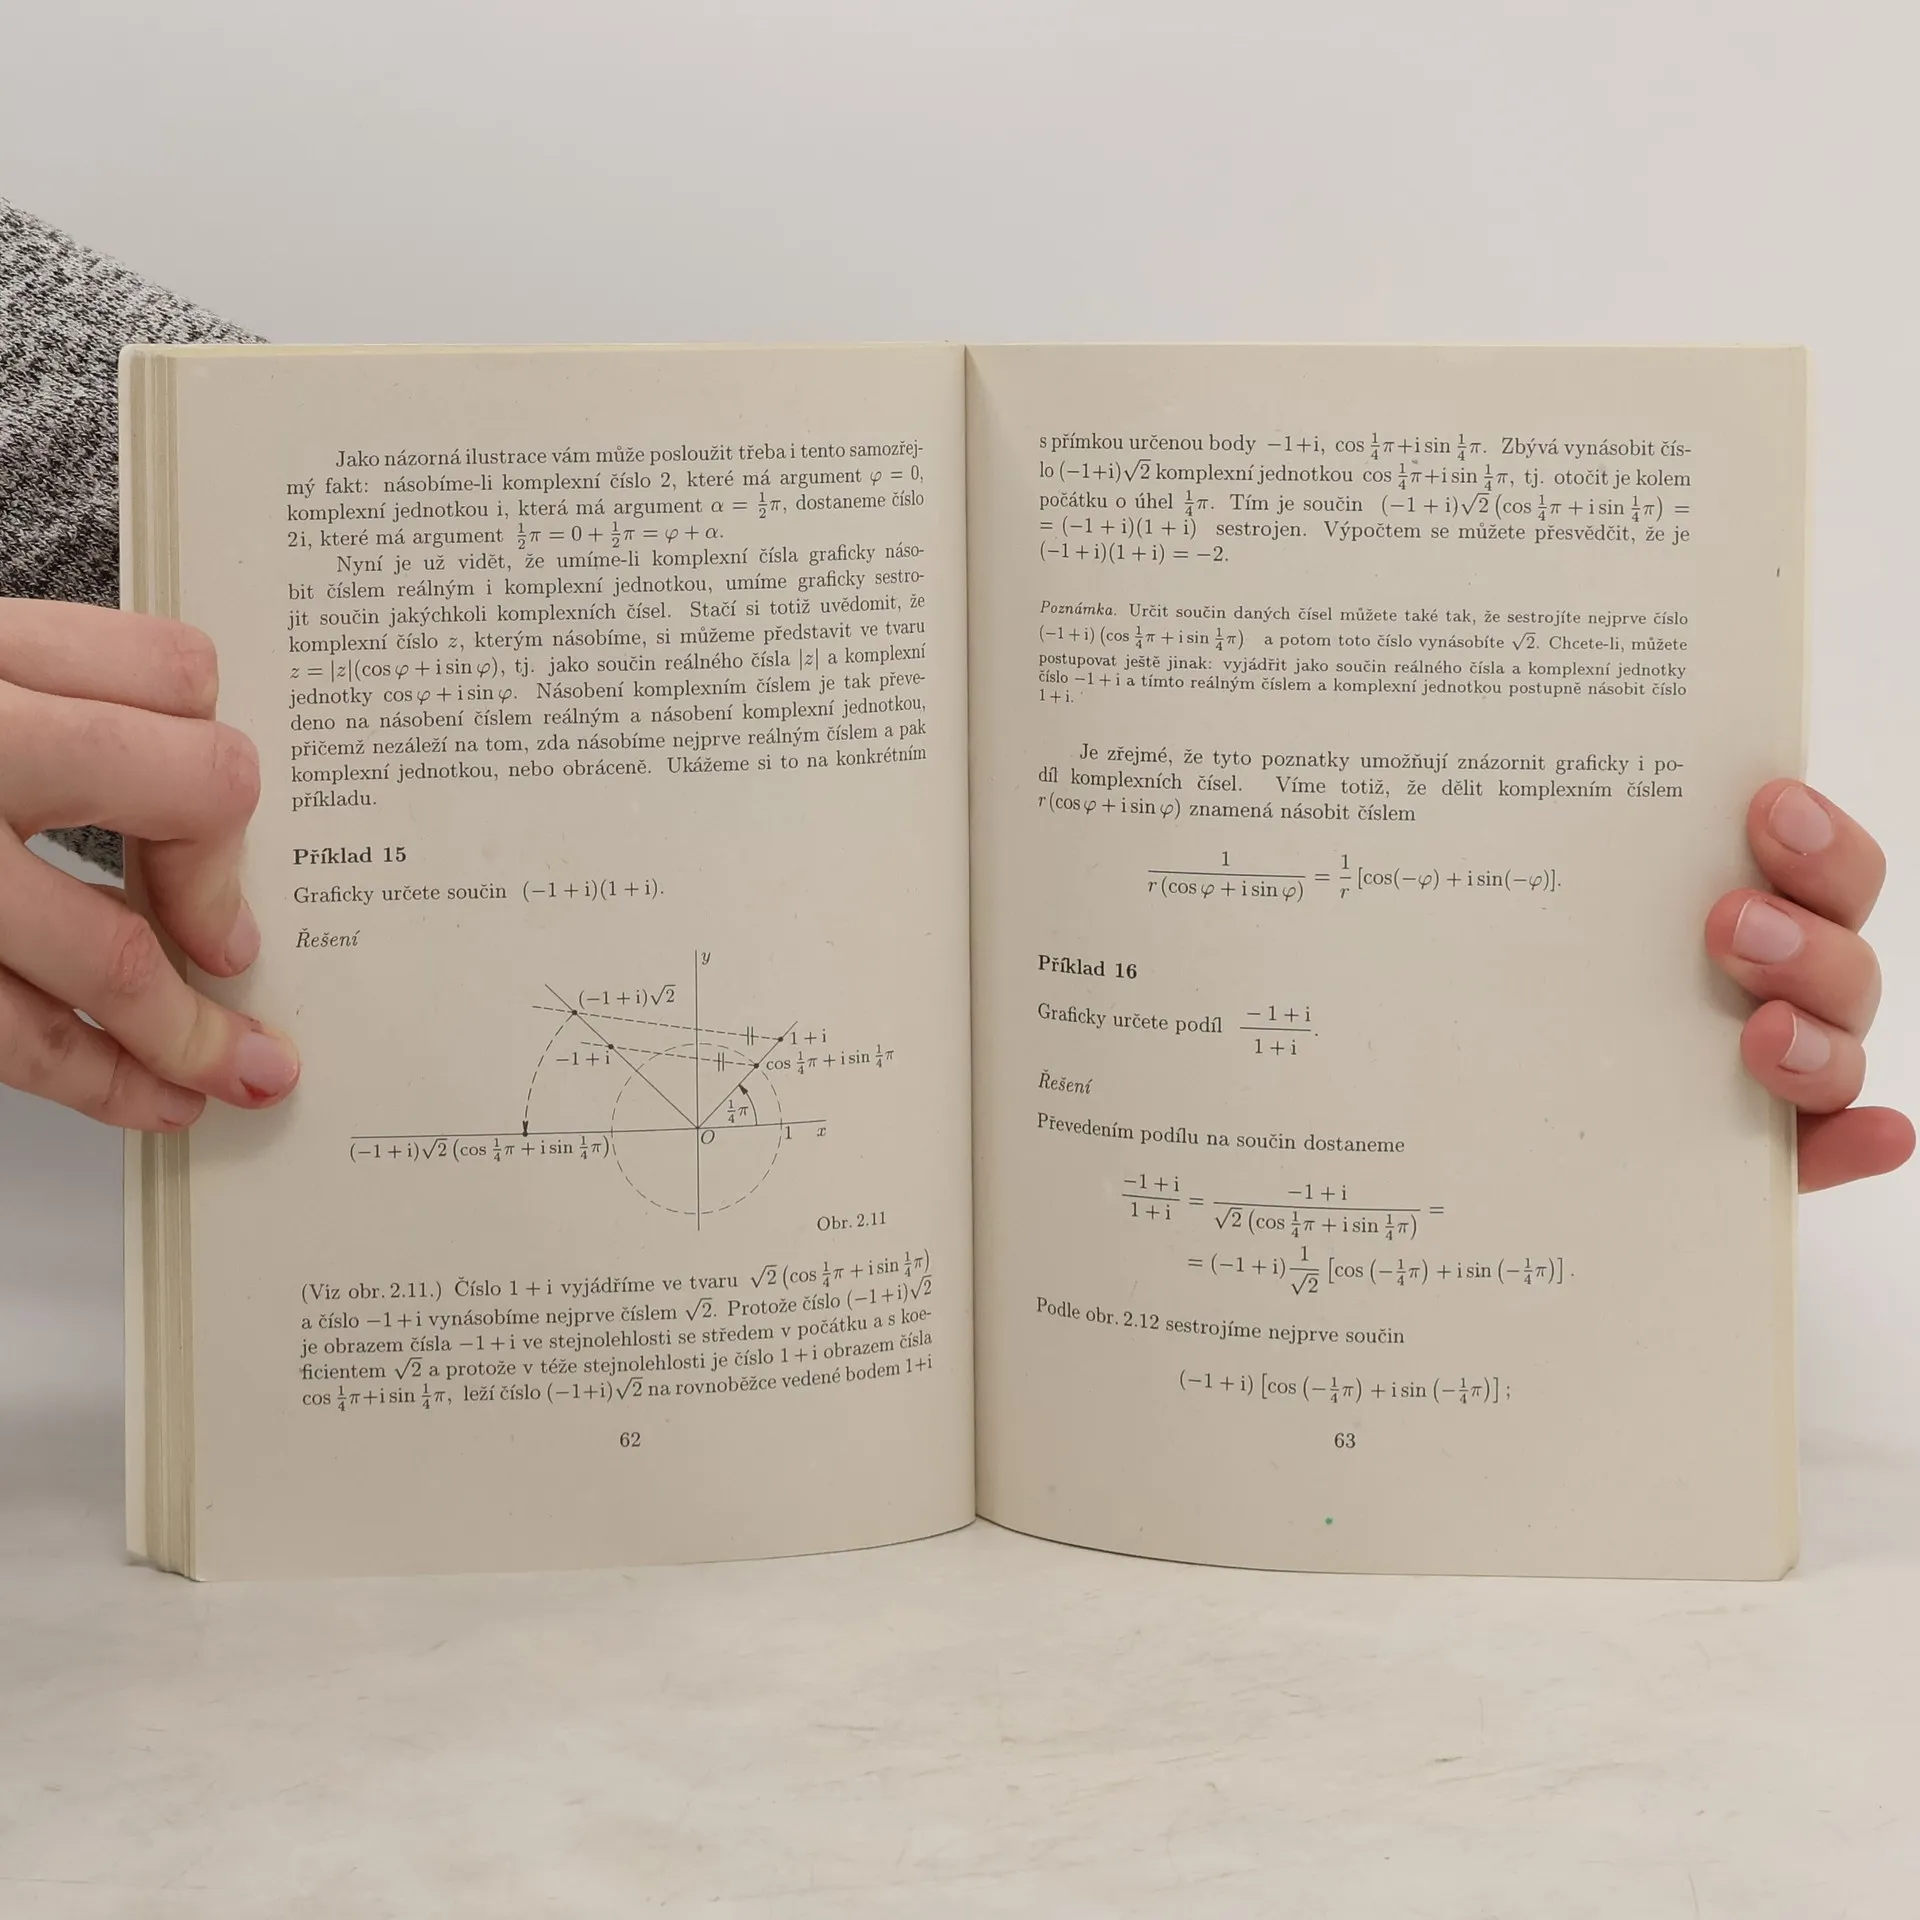 Jako názorná ilustrace vám může posloužit třeba i tento samozřej-
mý fakt: násobíme-li komplexní číslo 2, které má argument φ = 0,
komplexní jednotkou i, která má argument α = 1/2 π, dostaneme číslo
2i, které má argument 1/2 π = 0 + 1/2 π = φ + α.
Nyní je už vidět, že umíme-li komplexní čísla graficky náso-
bit číslem reálným i komplexní jednotkou, umíme graficky sestro-
jit součin jakýchkoli komplexních čísel. Stačí si totiž uvědomit, že
komplexní číslo z, kterým násobíme, si můžeme představit ve tvaru
z = |z|(cos φ + i sin φ), tj. jako součin reálného čísla |z| a komplexní
jednotky cos φ + i sin φ. Násobení komplexním číslem je tak převe-
deno na násobení číslem reálným a násobení komplexní jednotkou,
přičemž nezáleží na tom, zda násobíme nejprve reálným číslem a pak
komplexní jednotkou, nebo obráceně. Ukážeme si to na konkrétním
příkladu.
Příklad 15
Graficky určete součin (−1 + i)(1 + i).
Řešení
y
(−1 + i)√2
1 + i
−1 + i
cos 1/4 π + i sin 1/4 π
1/4 π
O
1
x
(−1 + i)√2 (cos 1/4 π + i sin 1/4 π)
Obr. 2.11
(Viz obr. 2.11.) Číslo 1 + i vyjádříme ve tvaru √2 (cos 1/4 π + i sin 1/4 π)
a číslo −1 + i vynásobíme nejprve číslem √2. Protože číslo (−1+i)√2
je obrazem čísla −1 + i ve stejnolehlosti se středem v počátku a s koe-
ficientem √2 a protože v téže stejnolehlosti je číslo 1 + i obrazem čísla
cos 1/4 π+i sin 1/4 π, leží číslo (−1+i)√2 na rovnoběžce vedené bodem 1+i
62
s přímkou určenou body −1+i, cos 1/4 π+i sin 1/4 π. Zbývá vynásobit čís-
lo (−1+i)√2 komplexní jednotkou cos 1/4 π+i sin 1/4 π, tj. otočit je kolem
počátku o úhel 1/4 π. Tím je součin (−1 + i)√2 (cos 1/4 π + i sin 1/4 π) =
= (−1 + i)(1 + i) sestrojen. Výpočtem se můžete přesvědčit, že je
(−1 + i)(1 + i) = −2.
Poznámka. Určit součin daných čísel můžete také tak, že sestrojíte nejprve číslo
(−1 + i) (cos 1/4 π + i sin 1/4 π) a potom toto číslo vynásobíte √2. Chcete-li, můžete
postupovat ještě jinak: vyjádřit jako součin reálného čísla a komplexní jednotky
číslo −1 + i a tímto reálným číslem a komplexní jednotkou postupně násobit číslo
1 + i.
Je zřejmé, že tyto poznatky umožňují znázornit graficky i po-
díl komplexních čísel. Víme totiž, že dělit komplexním číslem
r (cos φ + i sin φ) znamená násobit číslem
1/(r (cos φ + i sin φ)) = 1/r [cos(−φ) + i sin(−φ)].
Příklad 16
Graficky určete podíl (−1 + i)/(1 + i).
Řešení
Převedením podílu na součin dostaneme
(−1 + i)/(1 + i) = (−1 + i)/(√2 (cos 1/4 π + i sin 1/4 π)) =
= (−1 + i) 1/√2 [cos (−1/4 π) + i sin (−1/4 π)] .
Podle obr. 2.12 sestrojíme nejprve součin
(−1 + i) [cos (−1/4 π) + i sin (−1/4 π)] ;
63